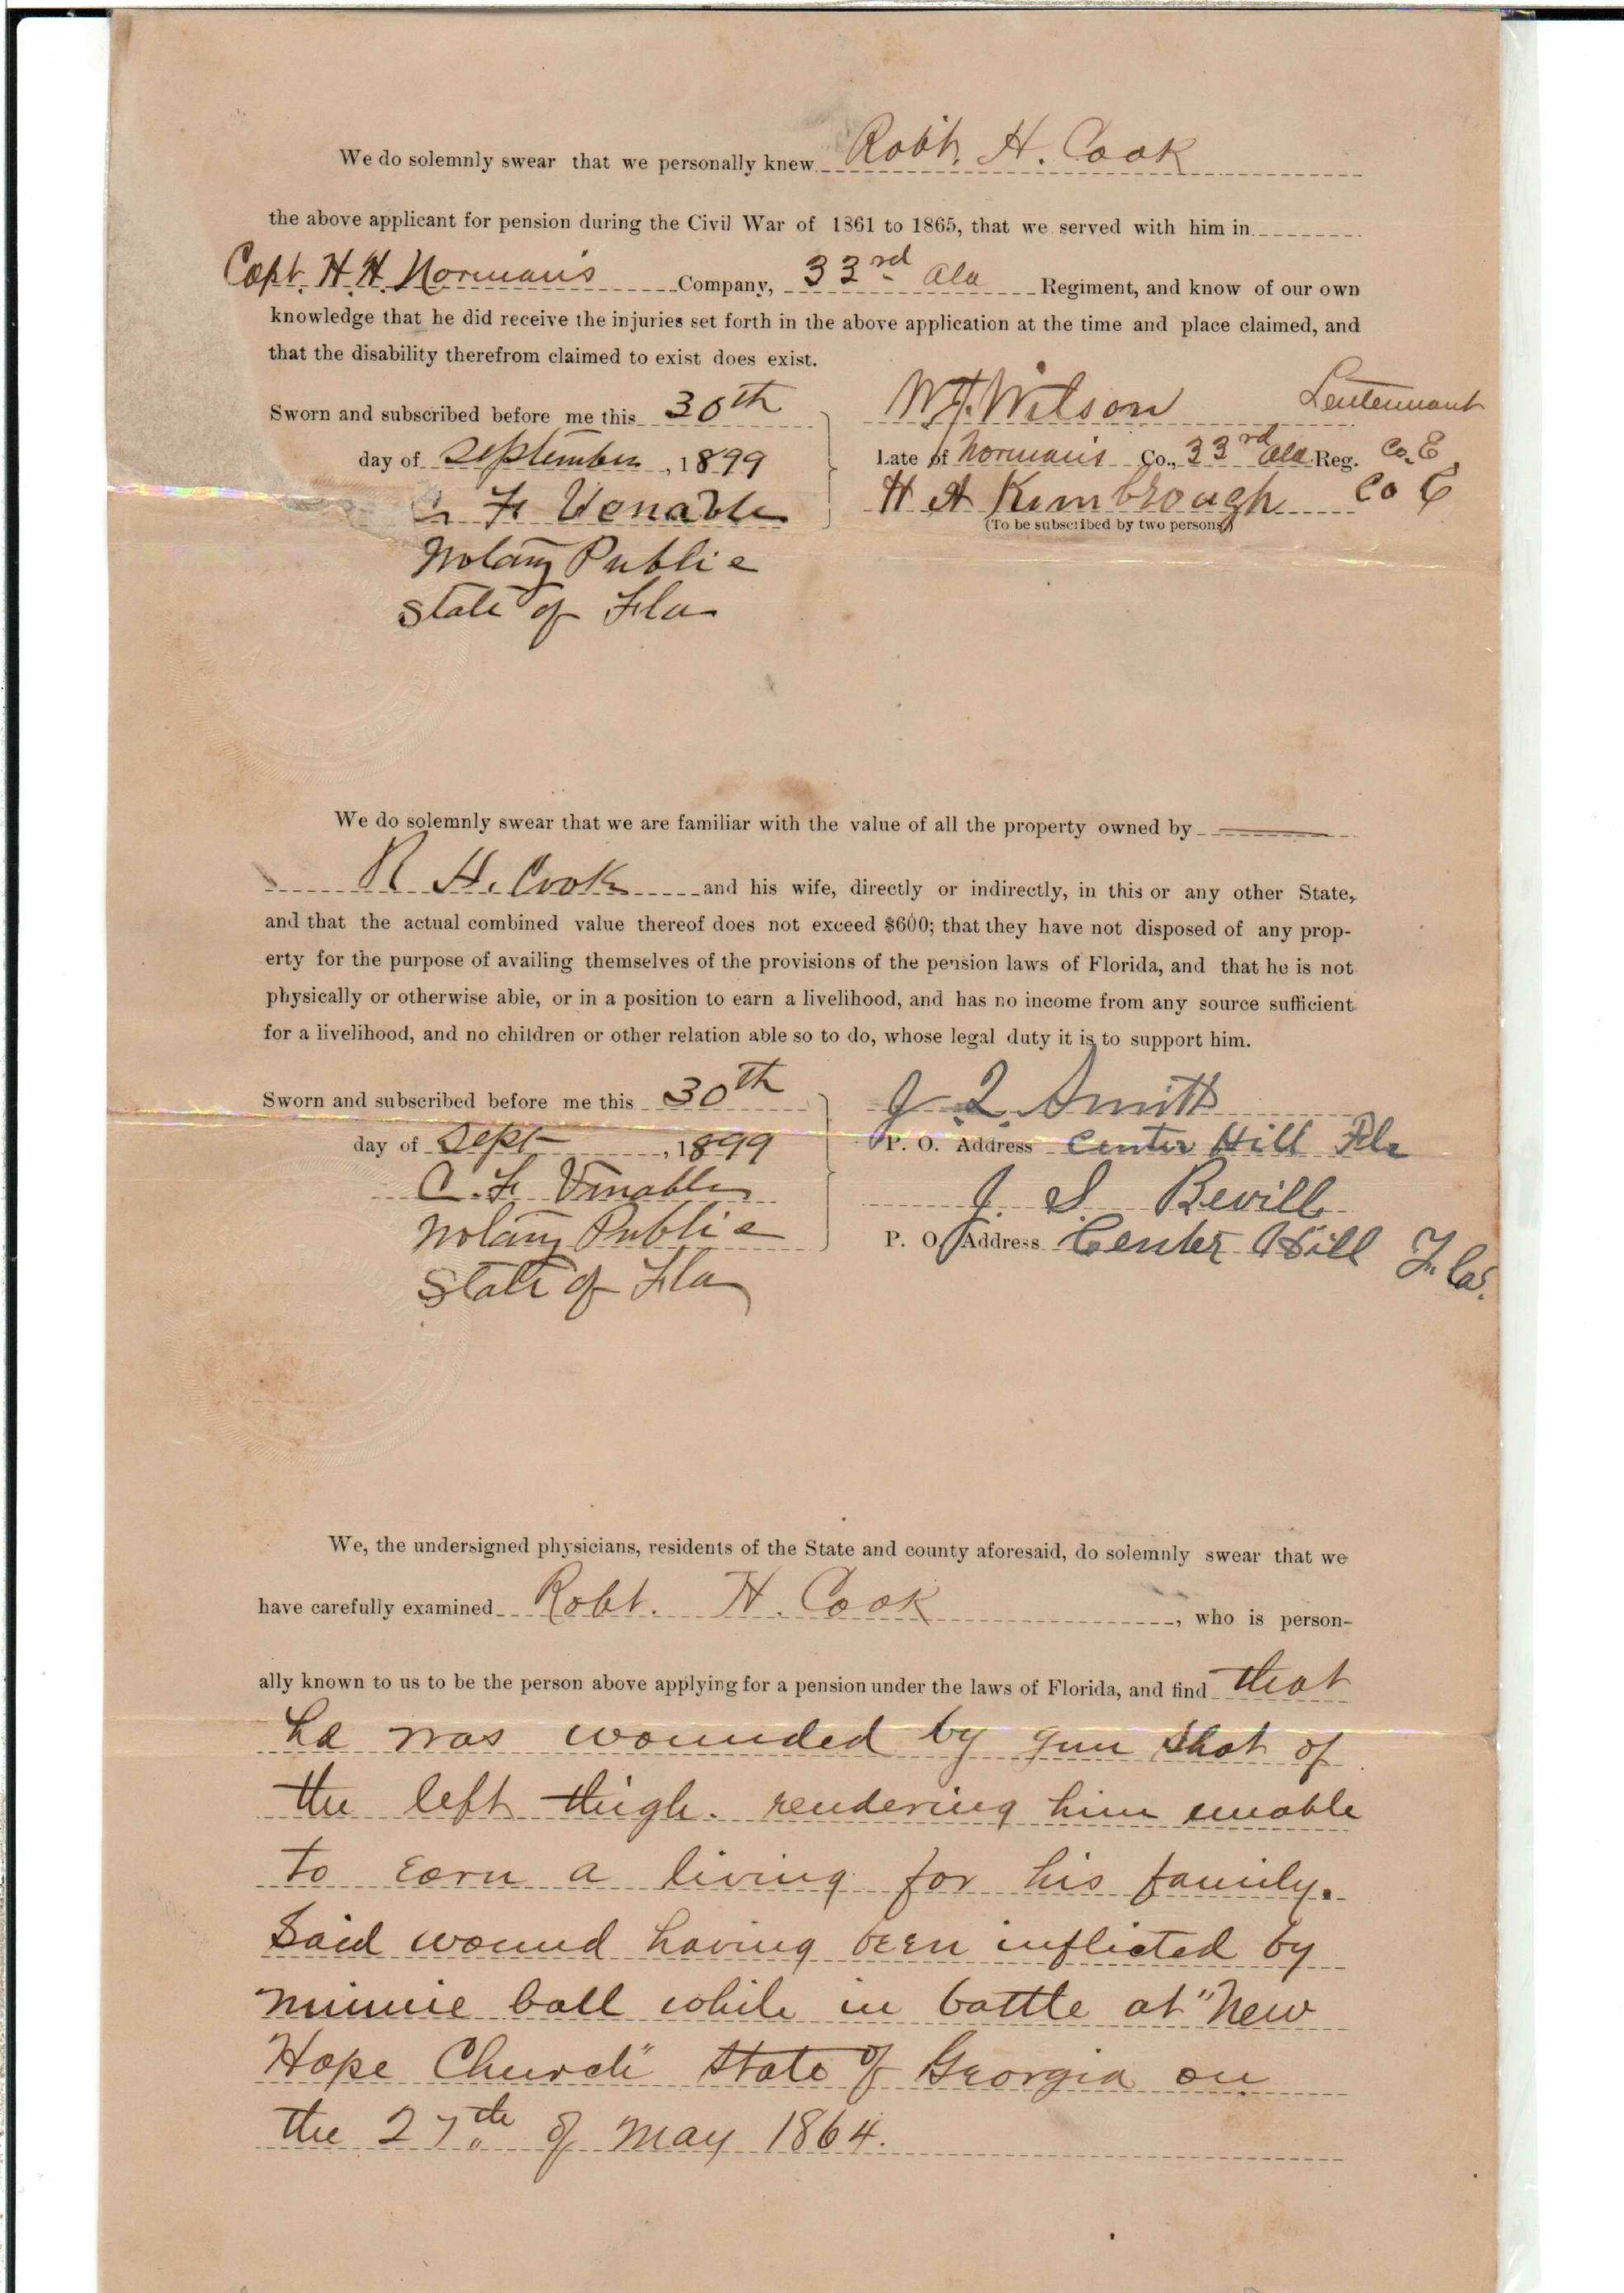 We do solemnly swear that we personally knew Robt. H. Cook
the above applicant for pension during the Civil War of 1861 to 1865, that we served with him in
Capt. H. H. Norman's Company, 33rd Ala Regiment, and know of our own
knowledge that he did receive the injuries set forth in the above application at the time and place claimed, and
that the disability therefrom claimed to exist does exist.
Sworn and subscribed before me this 30th
day of September, 1899
C. F. Venable
Notary Public
State of Fla
W. Wilson Leutennant
Late of Norman's Co., 33rd Ala Reg. Co. E
H A Kimbrough Co E
(To be subscribed by two persons)
We do solemnly swear that we are familiar with the value of all the property owned by
R H. Cook and his wife, directly or indirectly, in this or any other State,
and that the actual combined value thereof does not exceed $600; that they have not disposed of any prop-
erty for the purpose of availing themselves of the provisions of the pension laws of Florida, and that he is not
physically or otherwise able, or in a position to earn a livelihood, and has no income from any source sufficient
for a livelihood, and no children or other relation able so to do, whose legal duty it is to support him.
Sworn and subscribed before me this 30th
day of Sept, 1899
C. F. Venable
Notary Public
State of Fla
J Q Smith
P. O. Address Center Hill Fla
J. S Bevill
P. O. Address Center Hill Fla.
We, the undersigned physicians, residents of the State and county aforesaid, do solemnly swear that we
have carefully examined Robt. H. Cook, who is person-
ally known to us to be the person above applying for a pension under the laws of Florida, and find that
he was wounded by gun shot of
the left thigh. rendering him unable
to earn a living for his family.
Said wound having been inflicted by
minnie ball while in battle at "New
Hope Church" State of Georgia on
the 27th of May 1864.